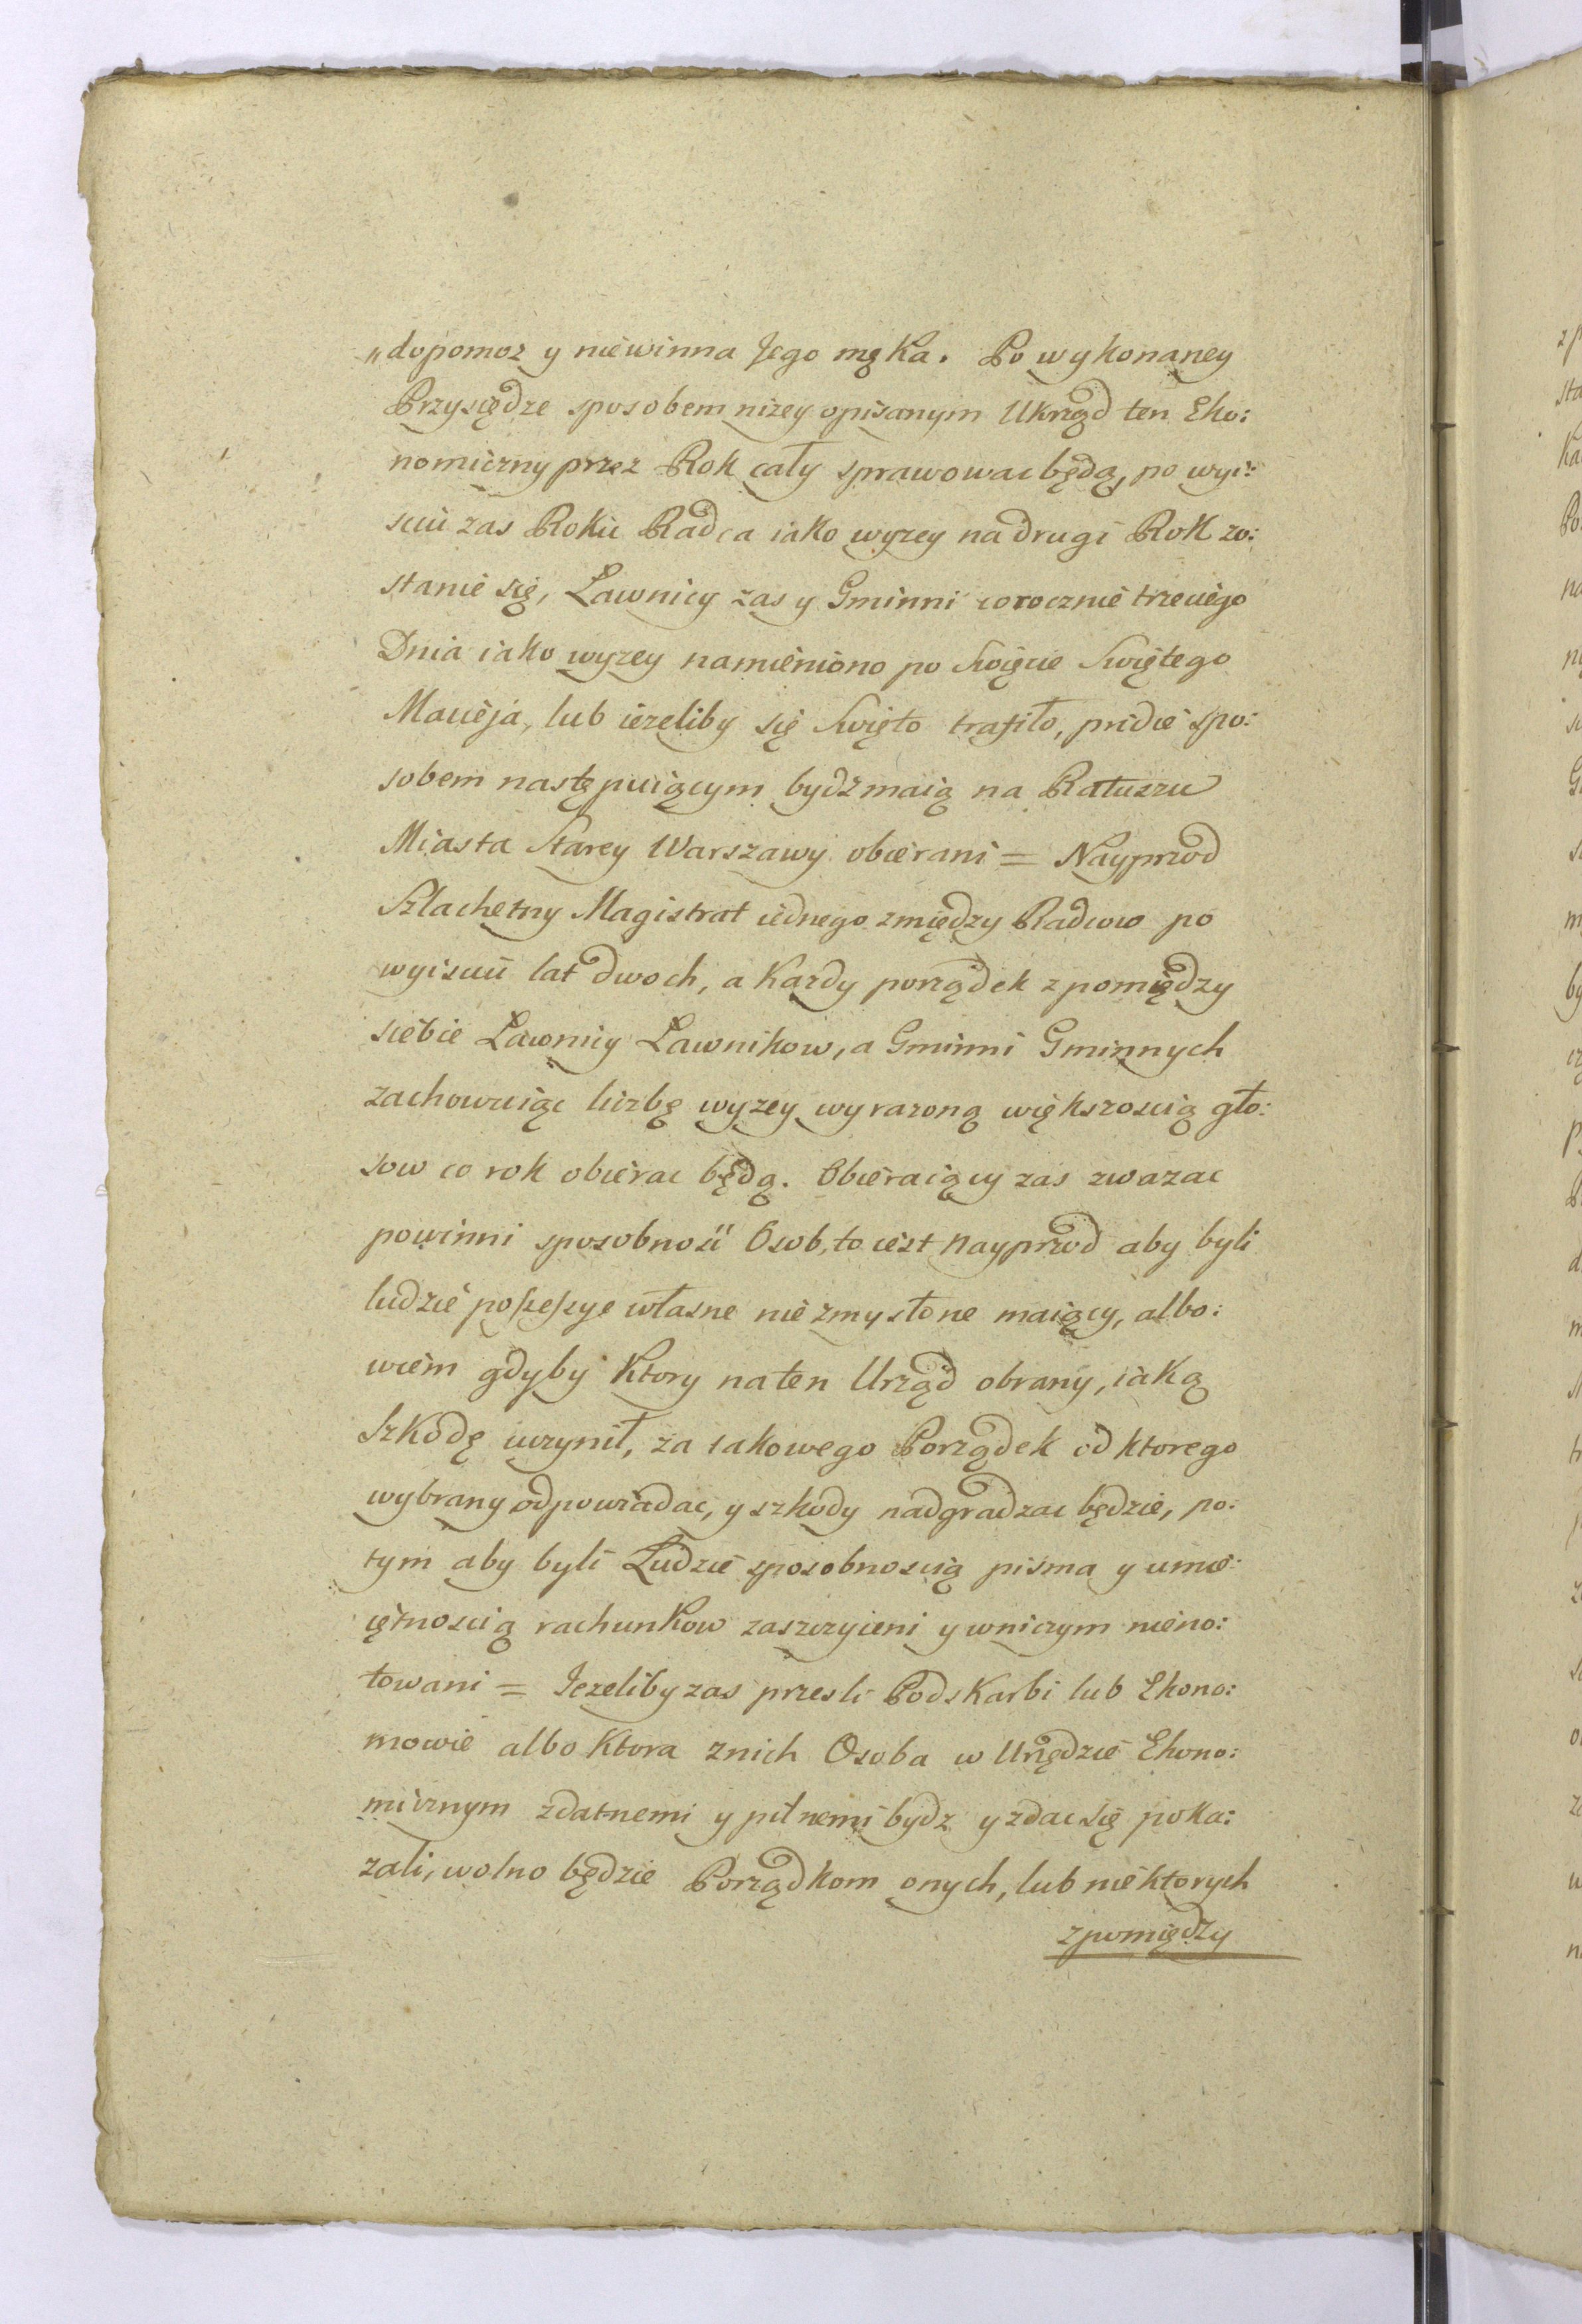 „dopomoz y niewinna Jego męka. Po wykonaney
Przysiędze sposobem nizey opisanym Ukrząd ten Eko:
nomiczny przez Rok cały sprawowac będą, po wyi:
sciu zas Roku Radca iako wyzey na drugi Rok zo:
stanie się, Ławnicy zas y Gminni corocznie trzeciego
Dnia iako wyzey namieniono po Swięcie Swiętego
Macieja, lub iezeliby się Swięto trafiło, pridie spo:
sobem następuiącym bydz maią na Ratuszu
Miasta Starey Warszawy obierani = Nayprzod
Szlachetny Magistrat iednego zmiędzy Radcow po
wyisciu lat dwoch, a Kazdy porządek z pomiędzy
siebie Ławnicy Ławnikow, a Gminni Gminnych
zachowuiąc liczbę wyzey wyrazoną większoscią gło:
sow co rok obierac będą. Obieraiący zas zwazac
powinni sposobnosci Osob, to iest nayprzod aby byli
ludzie possessye własne nie zmyslone maiący, albo:
wiem gdyby Ktory na ten Urząd obrany, iaką
Szkodę uczynił, za iakowego Porządek od ktorego
wybrany odpowiadac, y szkody nadgradzac będzie, po:
tym aby byli Ludzie sposobnoscią pisma y umie:
iętnoscią rachunkow zaszczyceni y wniczym nieno:
towani = Jezeliby zas przesli Podskarbi lub Ekono:
mowie albo Ktora znich Osoba w Urzędzie Ekono:
micznym zdatnemi y pilnemi bydz y zdac się poka:
zali, wolno będzie Porządkom onych, lub niektorych
zpomiędzy